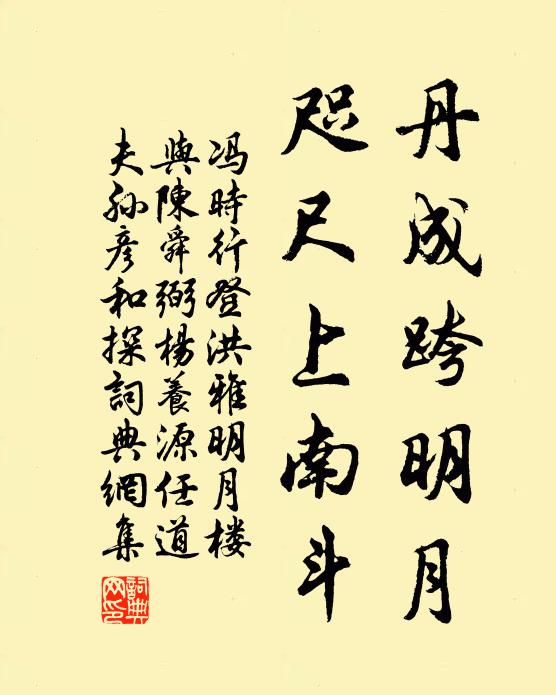 丹成跨明月
咫尺上南斗
冯時行登洪雅明月楼
與陳舜弼楊養源任道
夫孙彦和探詞典網集
詞典网印